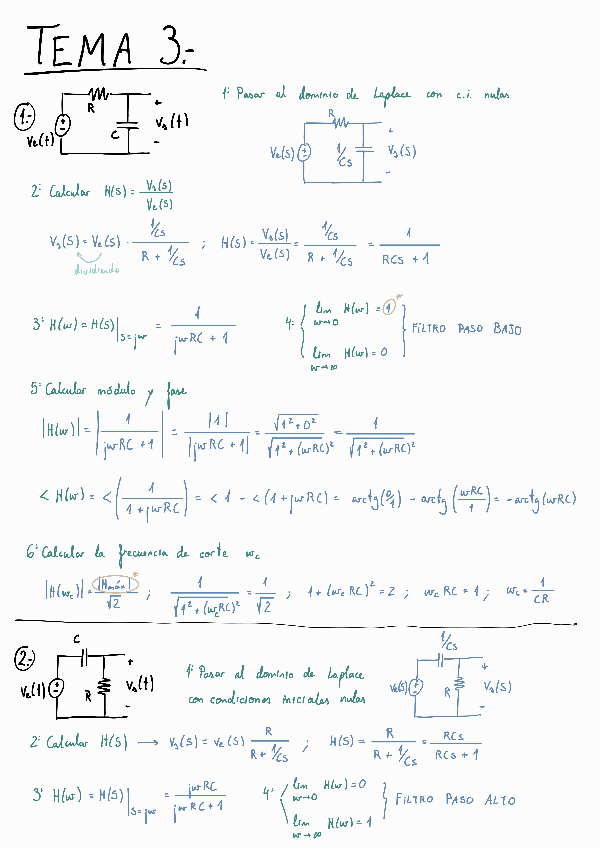 TEMA 3.-
1.-
R
C
Ve(t)
+
Vs(t)
-
1º Pasar al dominio de Laplace con c.i. nulas
R
Ve(S)
1/Cs
+
Vs(S)
-
2º Calcular H(S) = Vs(s)/Ve(s)
Vs(S) = Ve(S) · (1/Cs)/(R + 1/Cs) ; H(S) = Vs(s)/Ve(s) = (1/Cs)/(R + 1/Cs) = 1/(RCs + 1)
dividiendo
3º H(w) = H(S)|s=jw = 1/(jwRC + 1)
4º { lim w→0 H(w) = 1*
lim w→∞ H(w) = 0 } FILTRO PASO BAJO
5º Calcular módulo y fase
|H(w)| = |1/(jwRC + 1)| = |1|/|jwRC + 1| = √(1² + 0²)/√(1² + (wRC)²) = 1/√(1² + (wRC)²)
< H(w) = < (1/(1 + jwRC)) = < 1 - < (1 + jwRC) = arctg(0/1) - arctg(wRC/1) = -arctg(wRC)
6º Calcular la frecuencia de corte wc
|H(wc)| = |Hmáx|*/√2 ; 1/√(1² + (wcRC)²) = 1/√2 ; 1 + (wc RC)² = 2 ; wc RC = 1 ; wc = 1/CR
2.-
C
R
Ve(t)
+
Vs(t)
-
1º Pasar al dominio de Laplace
con condiciones iniciales nulas
1/Cs
Ve(s)
R
+
Vs(S)
-
2º Calcular H(S) → Vs(s) = Ve(s) R/(R + 1/Cs) ; H(S) = R/(R + 1/Cs) = RCs/(RCs + 1)
3º H(w) = H(S)|s=jw = jwRC/(jwRC + 1)
4º { lim w→0 H(w) = 0
lim w→∞ H(w) = 1 } FILTRO PASO ALTO